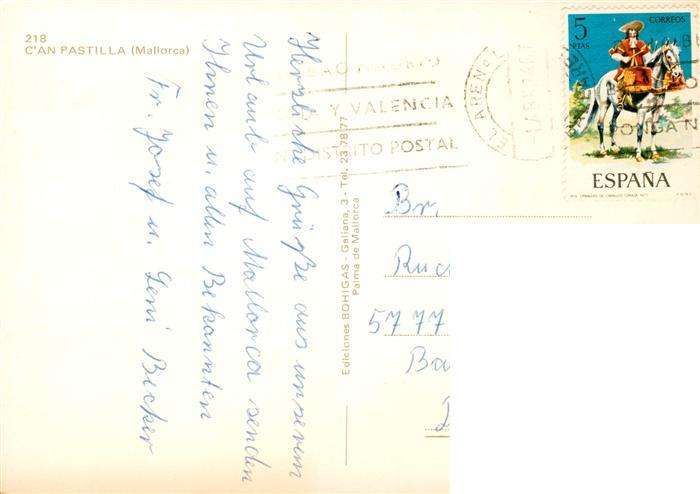 218
C'AN PASTILLA (Mallorca)
Herzliche Grüße aus unserem
Urlaub auf Mallorca senden
Ihnen u. allen Bekannten
Fr. Josef u. Leni Becker
Ediciones BOHIGAS - Galiana, 3 - Tel. 23 78 77
Palma de Mallorca
Y VALENCIA
DISTRITO POSTAL
EL ARENAL
PONGA
5
PTAS
CORREOS
ESPAÑA
Br.
Ruc
5777
Ba